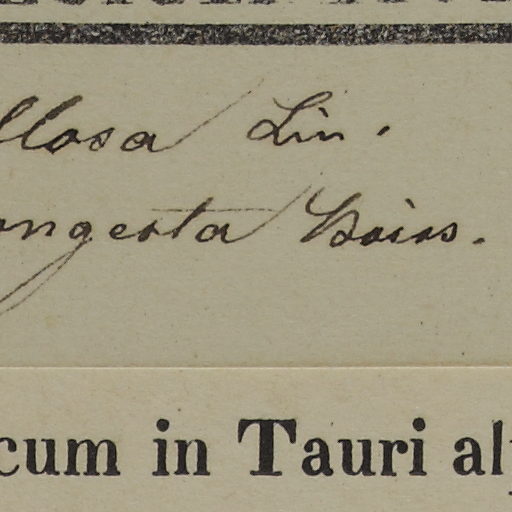 llosa Lin.
ongesta Boiss.
cum in Tauri alp